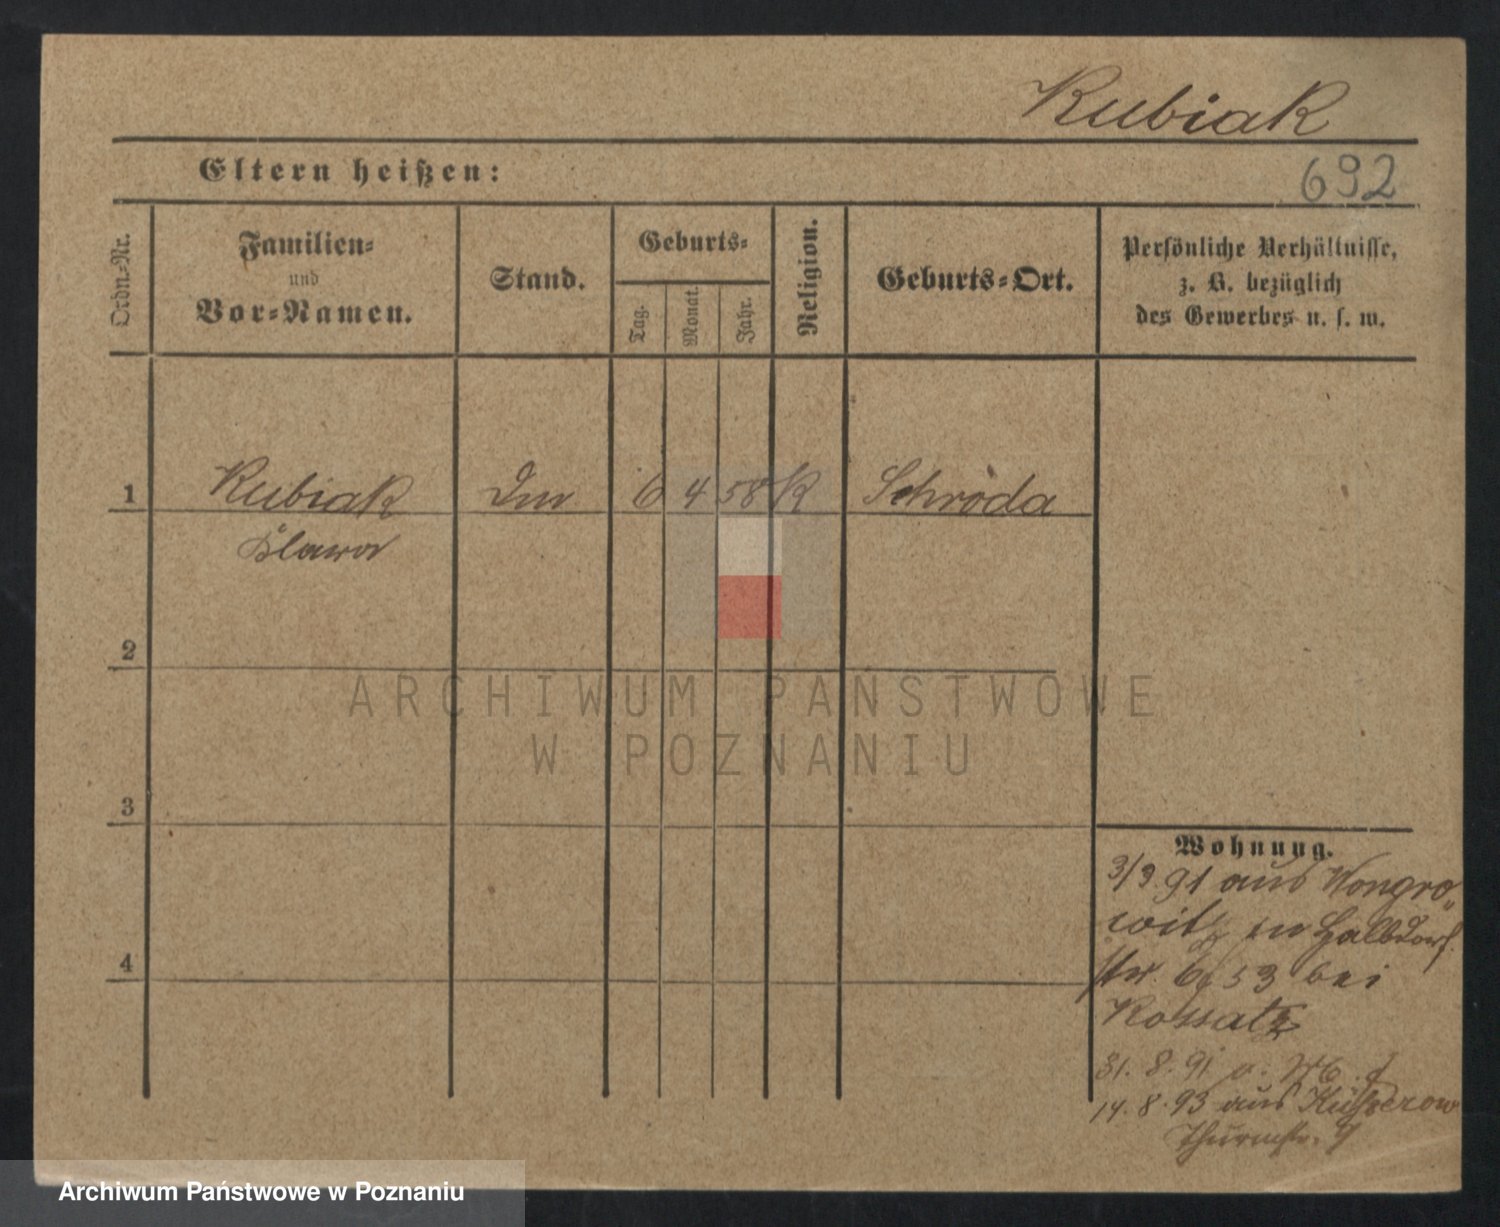 Kubiak
Eltern heißen:
692
Ordn.=Nr.
Familien=
und
Vor=Namen.
Stand.
Geburts=
Tag.
Monat.
Jahr.
Religion.
Geburts=Ort.
Persönliche Verhältnisse,
z. B. bezüglich
des Gewerbes u. s. w.
1 Kubiak 6 4 58 K Schroda
Klara
2
ARCHIWUM PAŃSTWOWE
W POZNANIU
3
Wohnung.
3/3 91 aus Wongro„
witz in Halbdorf
str. bei
Kossatz
31. 8. 91
14. 8. 93 aus
Thurmstr.
4
Archiwum Państwowe w Poznaniu